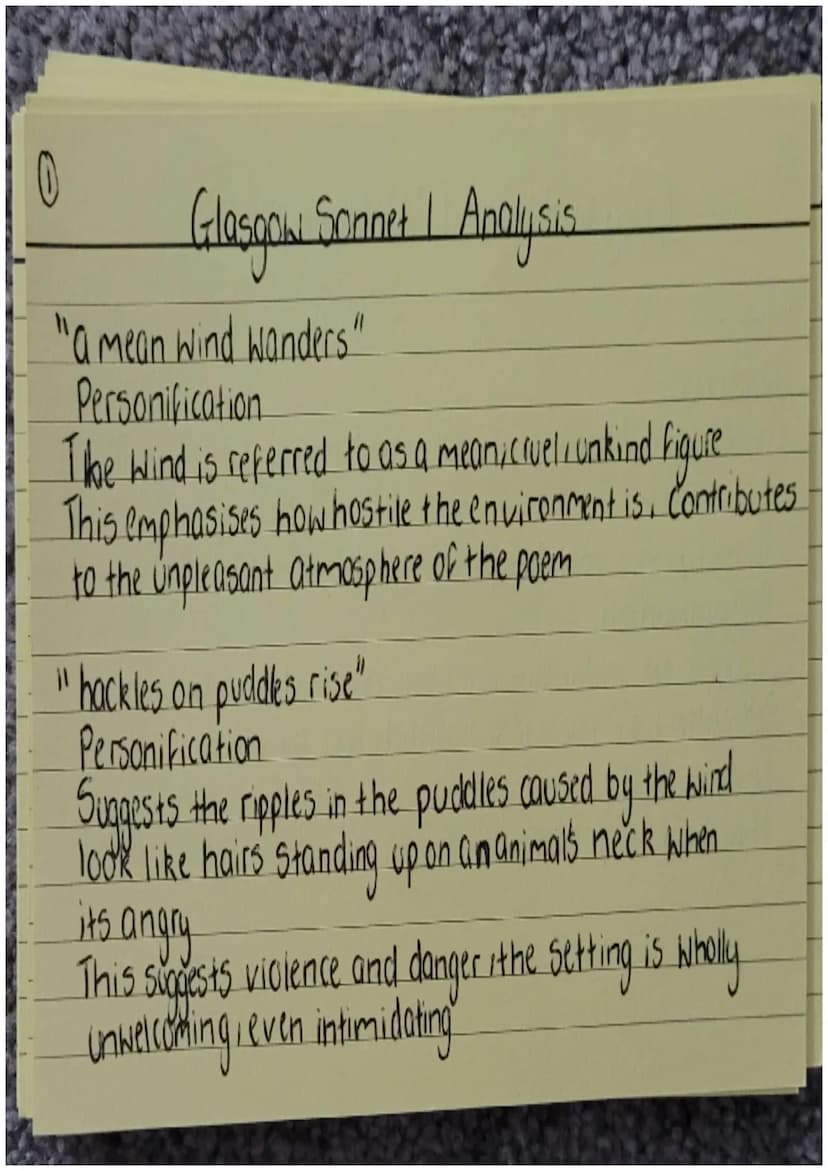 ①
Glasgow Sonnet 1 Analysis
"a mean wind wanders"
Personification
The wind is referred to as a mean, cruel, unkind figure
This emphasises how hostile the environment is, contributes
to the unpleasant atmosphere of the poem
"hackles on puddles rise"
Personification
Suggests the ripples in the puddles caused by the wind
look like hairs standing up on an animal's neck when
its angry
This suggests violence and danger, the setting is wholly
unwelcoming, even intimidating